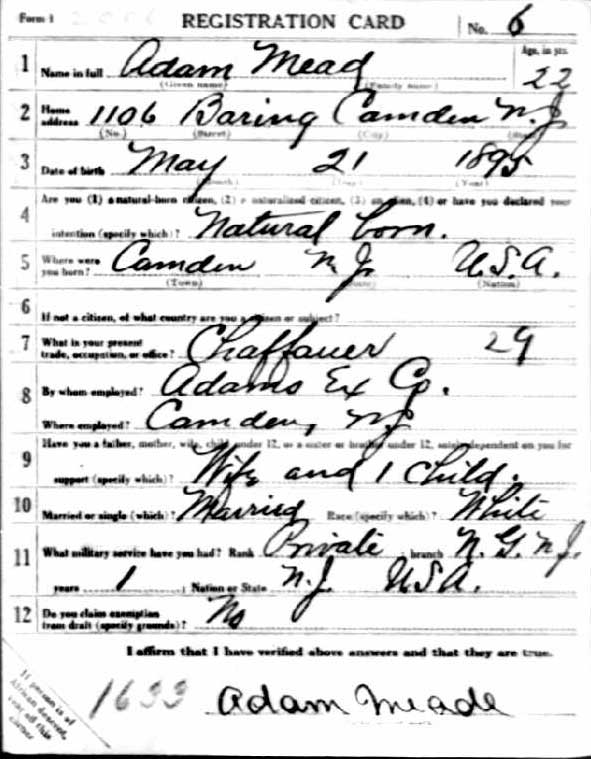 Form 1 REGISTRATION CARD No. 6
1 Name in full Adam Mead Age, in yrs. 22
(Given name) (Family name)
2 Home address 1106 Baring Camden N.J.
(No.) (Street) (City) (State)
3 Date of birth May 21 1895
(Month) (Day) (Year)
4 Are you (1) a natural-born citizen, (2) a naturalized citizen, (3) an alien, (4) or have you declared your
intention (specify which)? Natural born.
5 Where were you born? Camden N.J. U.S.A.
(Town) (State) (Nation)
6 If not a citizen, of what country are you a citizen or subject?
7 What is your present trade, occupation, or office? Chaffauer 29
8 By whom employed? Adams Ex Co.
Where employed? Camden, NJ
9 Have you a father, mother, wife, child under 12, or a sister or brother under 12, solely dependent on you for
support (specify which)? Wife and 1 child.
10 Married or single (which)? Married Race (specify which)? White
11 What military service have you had? Rank Private branch N.G.N.J.
years 1 Nation or State N.J. USA.
12 Do you claim exemption from draft (specify grounds)? No
I affirm that I have verified above answers and that they are true.
If person is of African descent, tear off this corner
1633 Adam Meade